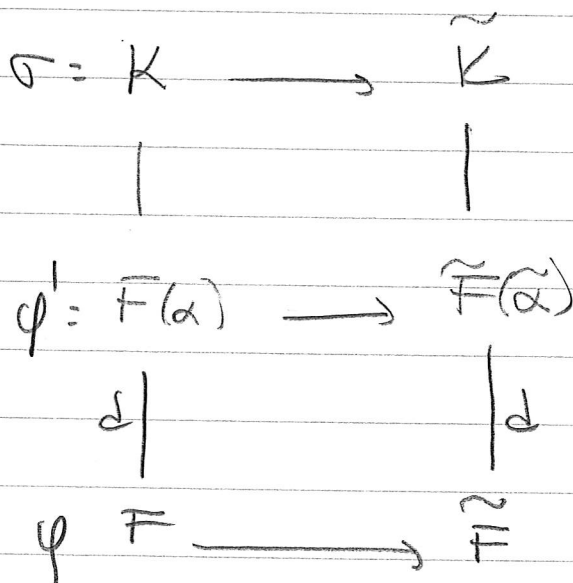 σ: K → K̃
φ': F(α) → F̃(α̃)
d d
φ F → F̃